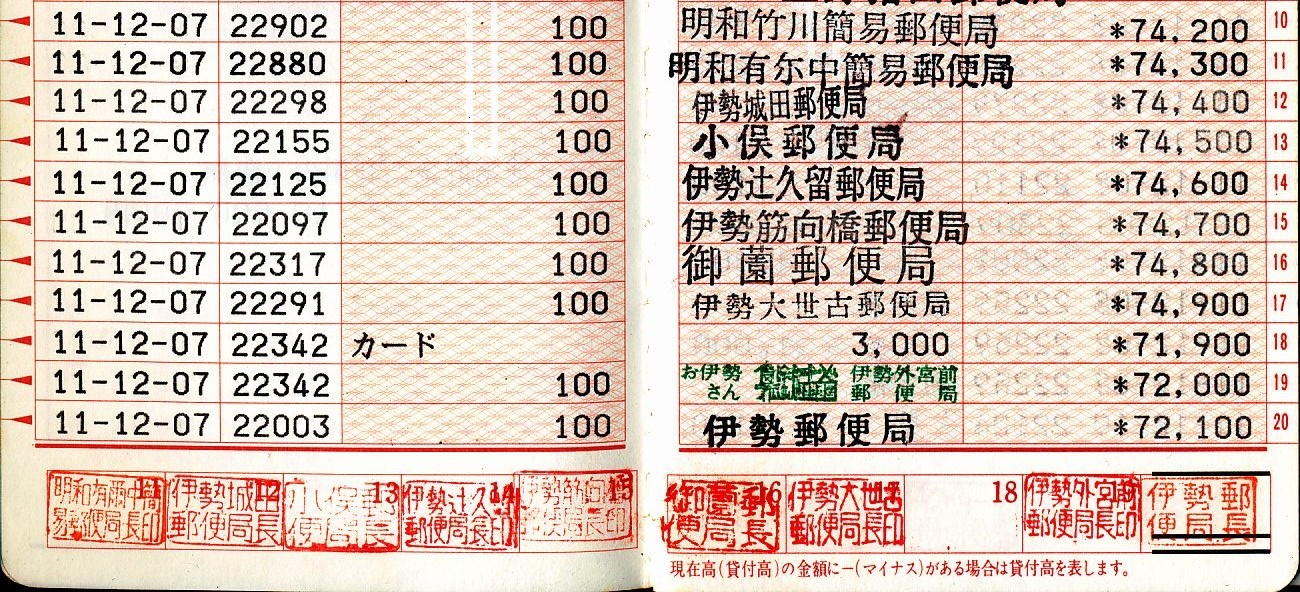 11-12-07 22902 100 明和竹川簡易郵便局 *74,200 10
11-12-07 22880 100 明和有尓中簡易郵便局 *74,300 11
11-12-07 22298 100 伊勢城田郵便局 *74,400 12
11-12-07 22155 100 小俣郵便局 *74,500 13
11-12-07 22125 100 伊勢辻久留郵便局 *74,600 14
11-12-07 22097 100 伊勢筋向橋郵便局 *74,700 15
11-12-07 22317 100 御薗郵便局 *74,800 16
11-12-07 22291 100 伊勢大世古郵便局 *74,900 17
11-12-07 22342 カード 3,000 *71,900 18
11-12-07 22342 100 お伊勢さん 伊勢外宮前郵便局 *72,000 19
11-12-07 22003 100 伊勢郵便局 *72,100 20
伊勢城田郵便局長印 12
小俣郵便局長 13
伊勢辻久留郵便局長印 14
御薗郵便局長 16
伊勢大世古郵便局長印
18
伊勢外宮前郵便局長印
伊勢郵便局長
現在高(貸付高)の金額に-(マイナス)がある場合は貸付高を表します。